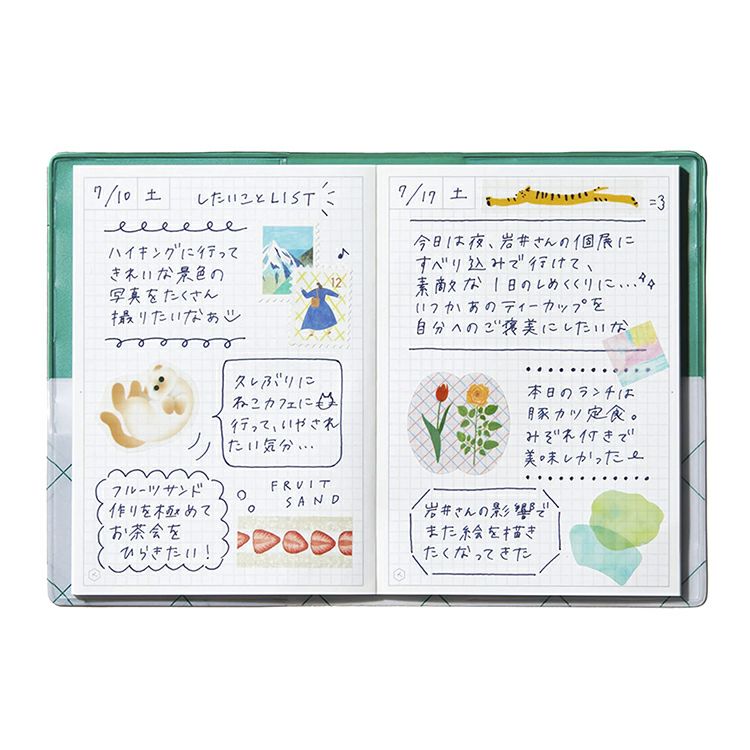 7/10 土 したいことLIST
ハイキングに行って
きれいな景色の
写真をたくさん
撮りたいなぁ
12
久しぶりに
ねこカフェに
行って、いやされ
たい気分…
フルーツサンド
作りを極めて
お茶会を
ひらきたい!
FRUIT
SAND
7/17 土 =3
今日は夜、岩井さんの個展に
すべり込みで行けて、
素敵な1日のしめくくりに…
いつかあのティーカップを
自分へのご褒美にしたいな
本日のランチは
豚カツ定食。
みぞれ付きで
美味しかった
岩井さんの影響で
また絵を描き
たくなってきた